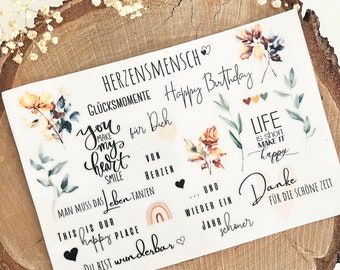 HERZENSMENSCH
GLÜCKSMOMENTE
Happy Birthday
für Dich
you
MAKE
my
heart
SMILE
VON
HERZEN
LIFE
is short
MAKE IT
happy
MAN MUSS DAS Leben TANZEN
... UND
WIEDER EIN
JAHR
schöner
Danke
FÜR DIE SCHÖNE ZEIT
THIS IS OUR
happy PLACE
DU BIST wunderbar